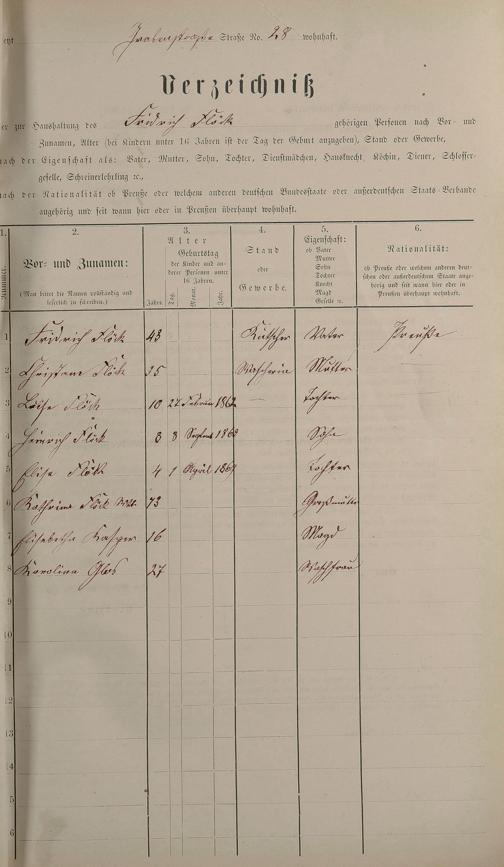 Straße No. 28 wohnhaft.
Verzeichniß
er zur Haushaltung des Fridrich Flöck gehörigen Personen nach Vor- und
Zunamen, Alter (bei Kindern unter 16 Jahren ist der Tag der Geburt anzugeben), Stand oder Gewerbe,
nach der Eigenschaft als: Vater, Mutter, Sohn, Tochter, Dienstmädchen, Hausknecht, Köchin, Diener, Schlosser-
geselle, Schreinerlehrling ꝛc.,
nach der Nationalität ob Preuße oder welchem anderen deutschen Bundesstaate oder außerdeutschen Staats-Verbande
angehörig und seit wann hier oder in Preußen überhaupt wohnhaft.
1. 2. 3. 4. 5. 6.
Nummer.
Vor- und Zunamen:
(Man bittet die Namen vollständig und
leserlich zu schreiben.)
Alter
Geburtstag
der Kinder und an-
derer Personen unter
16 Jahren.
Jahre. Tag. Monat. Jahr.
Stand
oder
Gewerbe.
Eigenschaft:
ob Vater
Mutter
Sohn
Tochter
Knecht
Magd
Geselle ꝛc.
Nationalität:
ob Preuße oder welchem anderen deut-
schen oder außerdeutschen Staate ange-
hörig und seit wann hier oder in
Preußen überhaupt wohnhaft.
1 Fridrich Flöck 43 Kutscher Vater Preuße
2 Christiane Flöck 35 Wascherin Mutter
3 Luise Flöck 10 27 Februar 1862 — Tochter
4 Heinrich Flöck 8 8 Septemb 1863 Sohn
5 Elise Flöck 4 1 April 1867 Tochter
6 Kathrina Flöck Wtt. 73 Großmutter
7 Elisabetha Kasper 16 Magd
8 Karolina Glos 27 Waschfrau
9
10
11
12
13
4
5
6